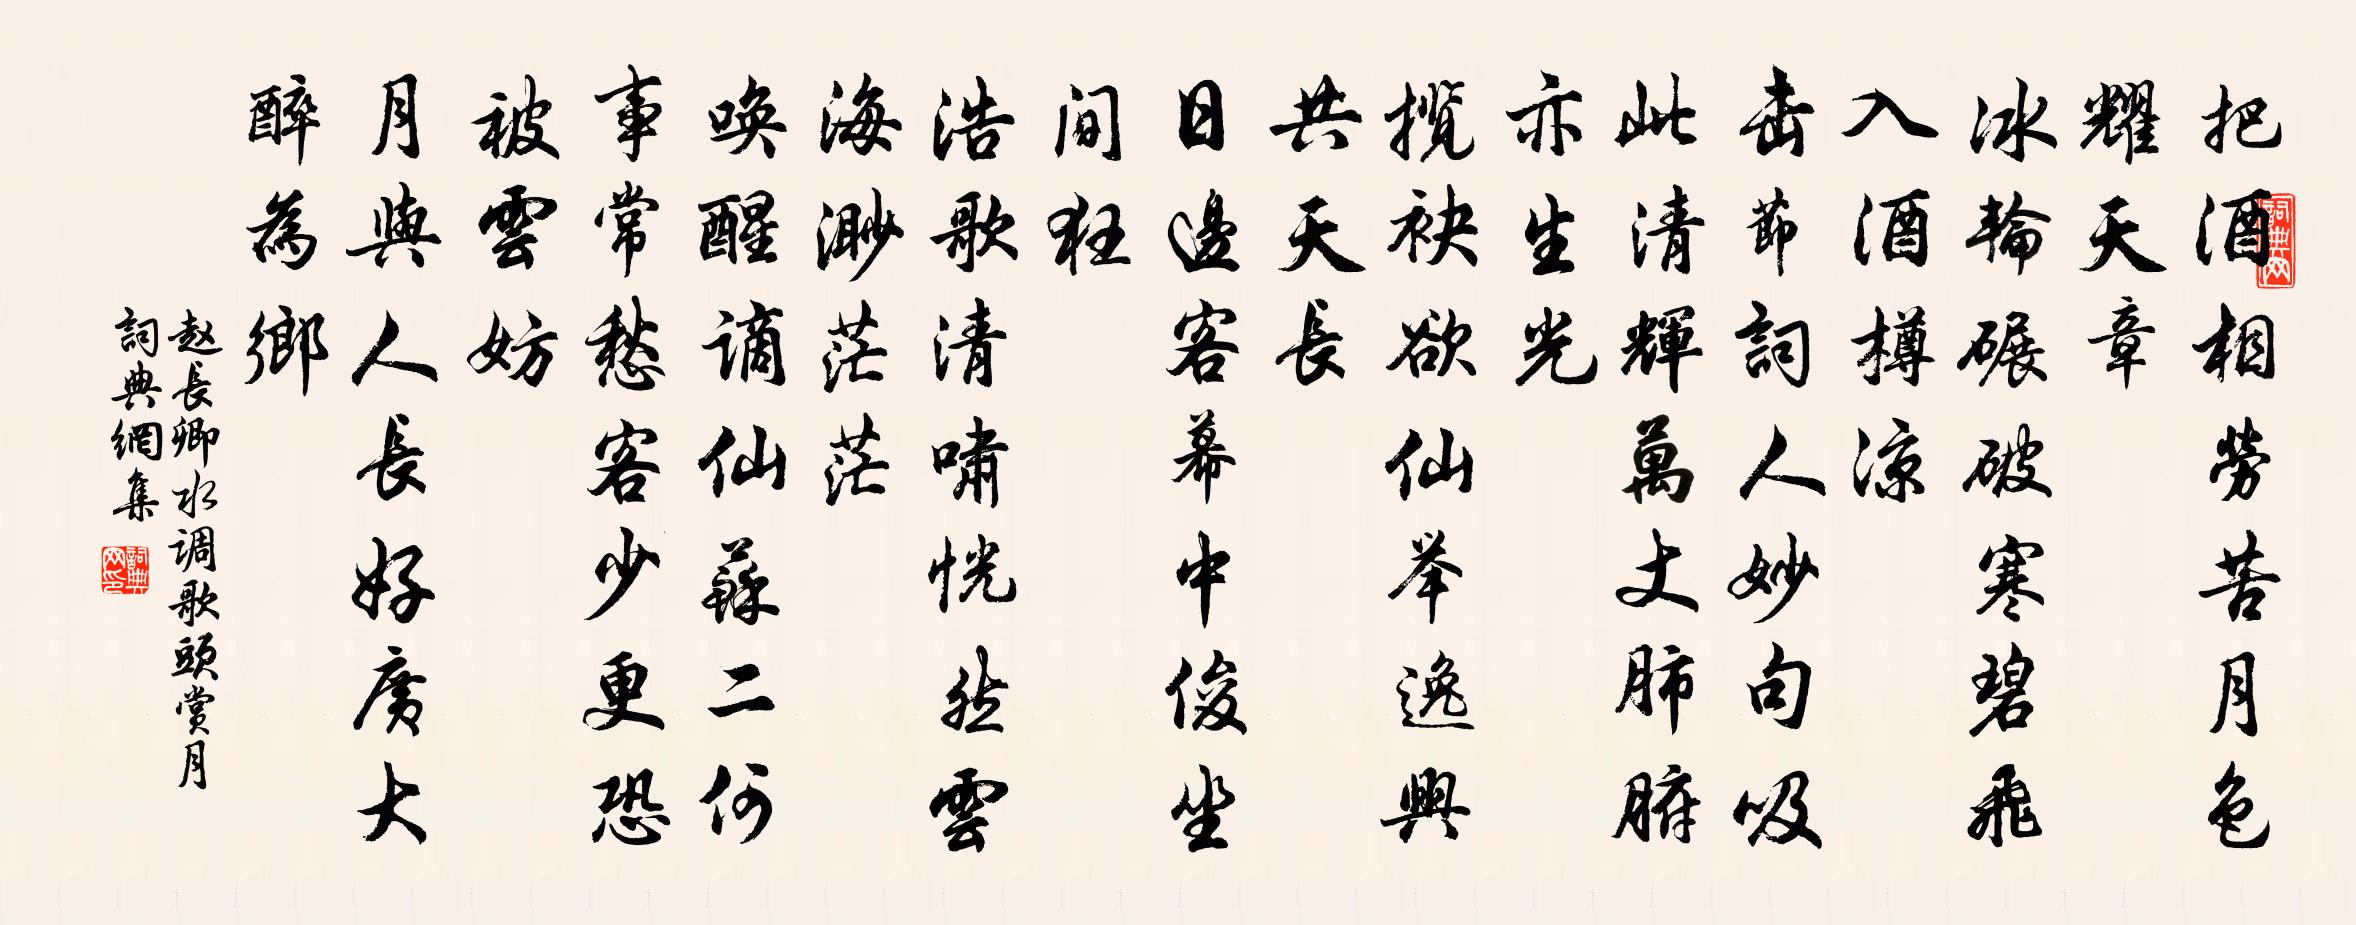 把酒相勞苦月色
耀天章
冰輪碾破寒碧飛
入酒樽涼
击節詞人妙句吸
此清輝萬丈肺腑
亦生光
攬袂欲仙举逸興
共天長
日邊客幕中俊坐
间狂
浩歌清啸恍然雲
海渺茫茫
唤醒谪仙蘇二何
事常愁客少更恐
被雲妨
月與人長好廣大
醉為鄉
赵長卿水调歌頭賞月
詞典網集
詞典网
詞典网印